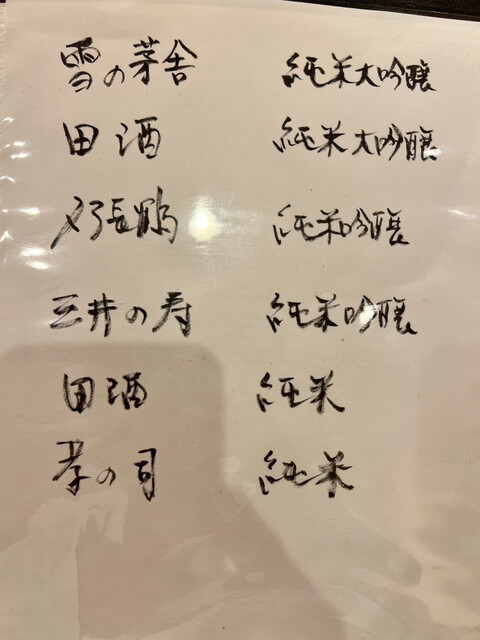 雪の茅舎 純米大吟醸
田酒 純米大吟醸
〆張鶴 純米吟醸
三井の寿 純米吟醸
田酒 純米
孝の司 純米